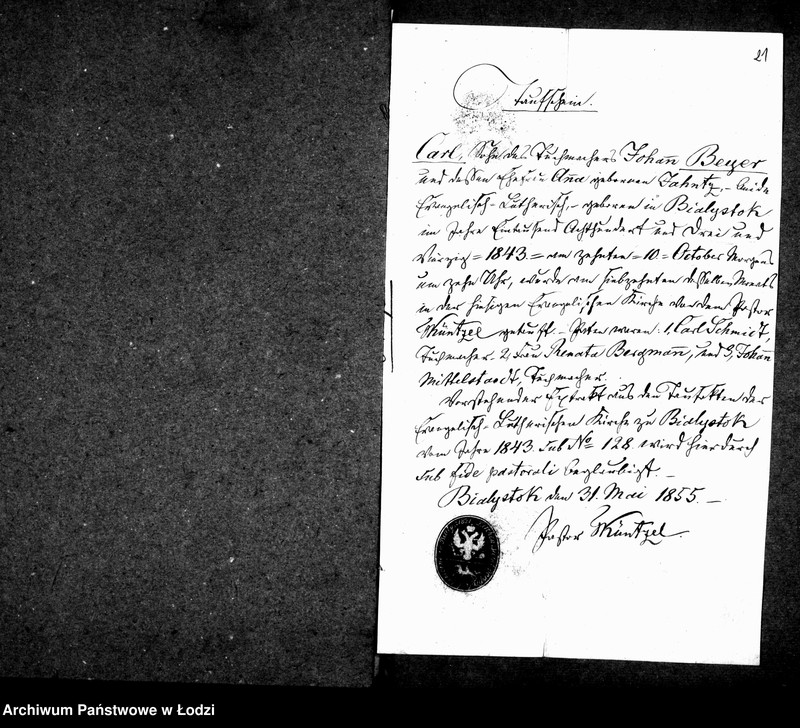 21
Taufschein.
Carl, Sohn des Tuchmachers Johan̄ Beyer
und dessen Ehefrau An̄a gebornen Jahntz, – beide
Evangelisch-Lutherisch, – geboren in Bialystok
im Jahre Eintausend Achthundert und Drei und
Vierzig = 1843. = am zehnten = 10 = October Morgens
um zehn Uhr, wurde am siebzehnten desselben Monats
in der hiesigen Evangelischen Kirche von dem Pastor
Küntzel getauft. – Paten waren: 1, Carl Schmidt,
Tuchmacher. 2, Frau Renata Bergman̄, und 3, Johan̄
Mittelstaedt, Tuchmacher.
Vorstehender Extrakt aus den Taufakten der
Evangelisch-Lutherischen Kirche zu Bialystok
vom Jahre 1843. sub No 128 wird hierdurch
sub fide pastorali beglaubigt. –
Bialystok den 31. Mai 1855. –
Pastor Küntzel.
Archiwum Państwowe w Łodzi